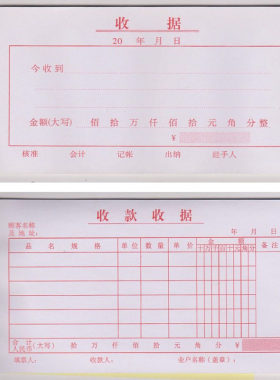 收据
20 年 月 日
今收到
金额(大写) 佰 拾 万 仟 佰 拾 元 角 分整
¥
核准 会计 记帐 出纳 经手人
收款收据
顾客名称
及地址: 年 月 日
品名 规格 单位 数量 单价 金额 备注
十万千百十元角分
合计
人民币(大写) 拾 万 仟 佰 拾 元 角 分 ¥
填票人: 收款人: 业户名称(盖章):